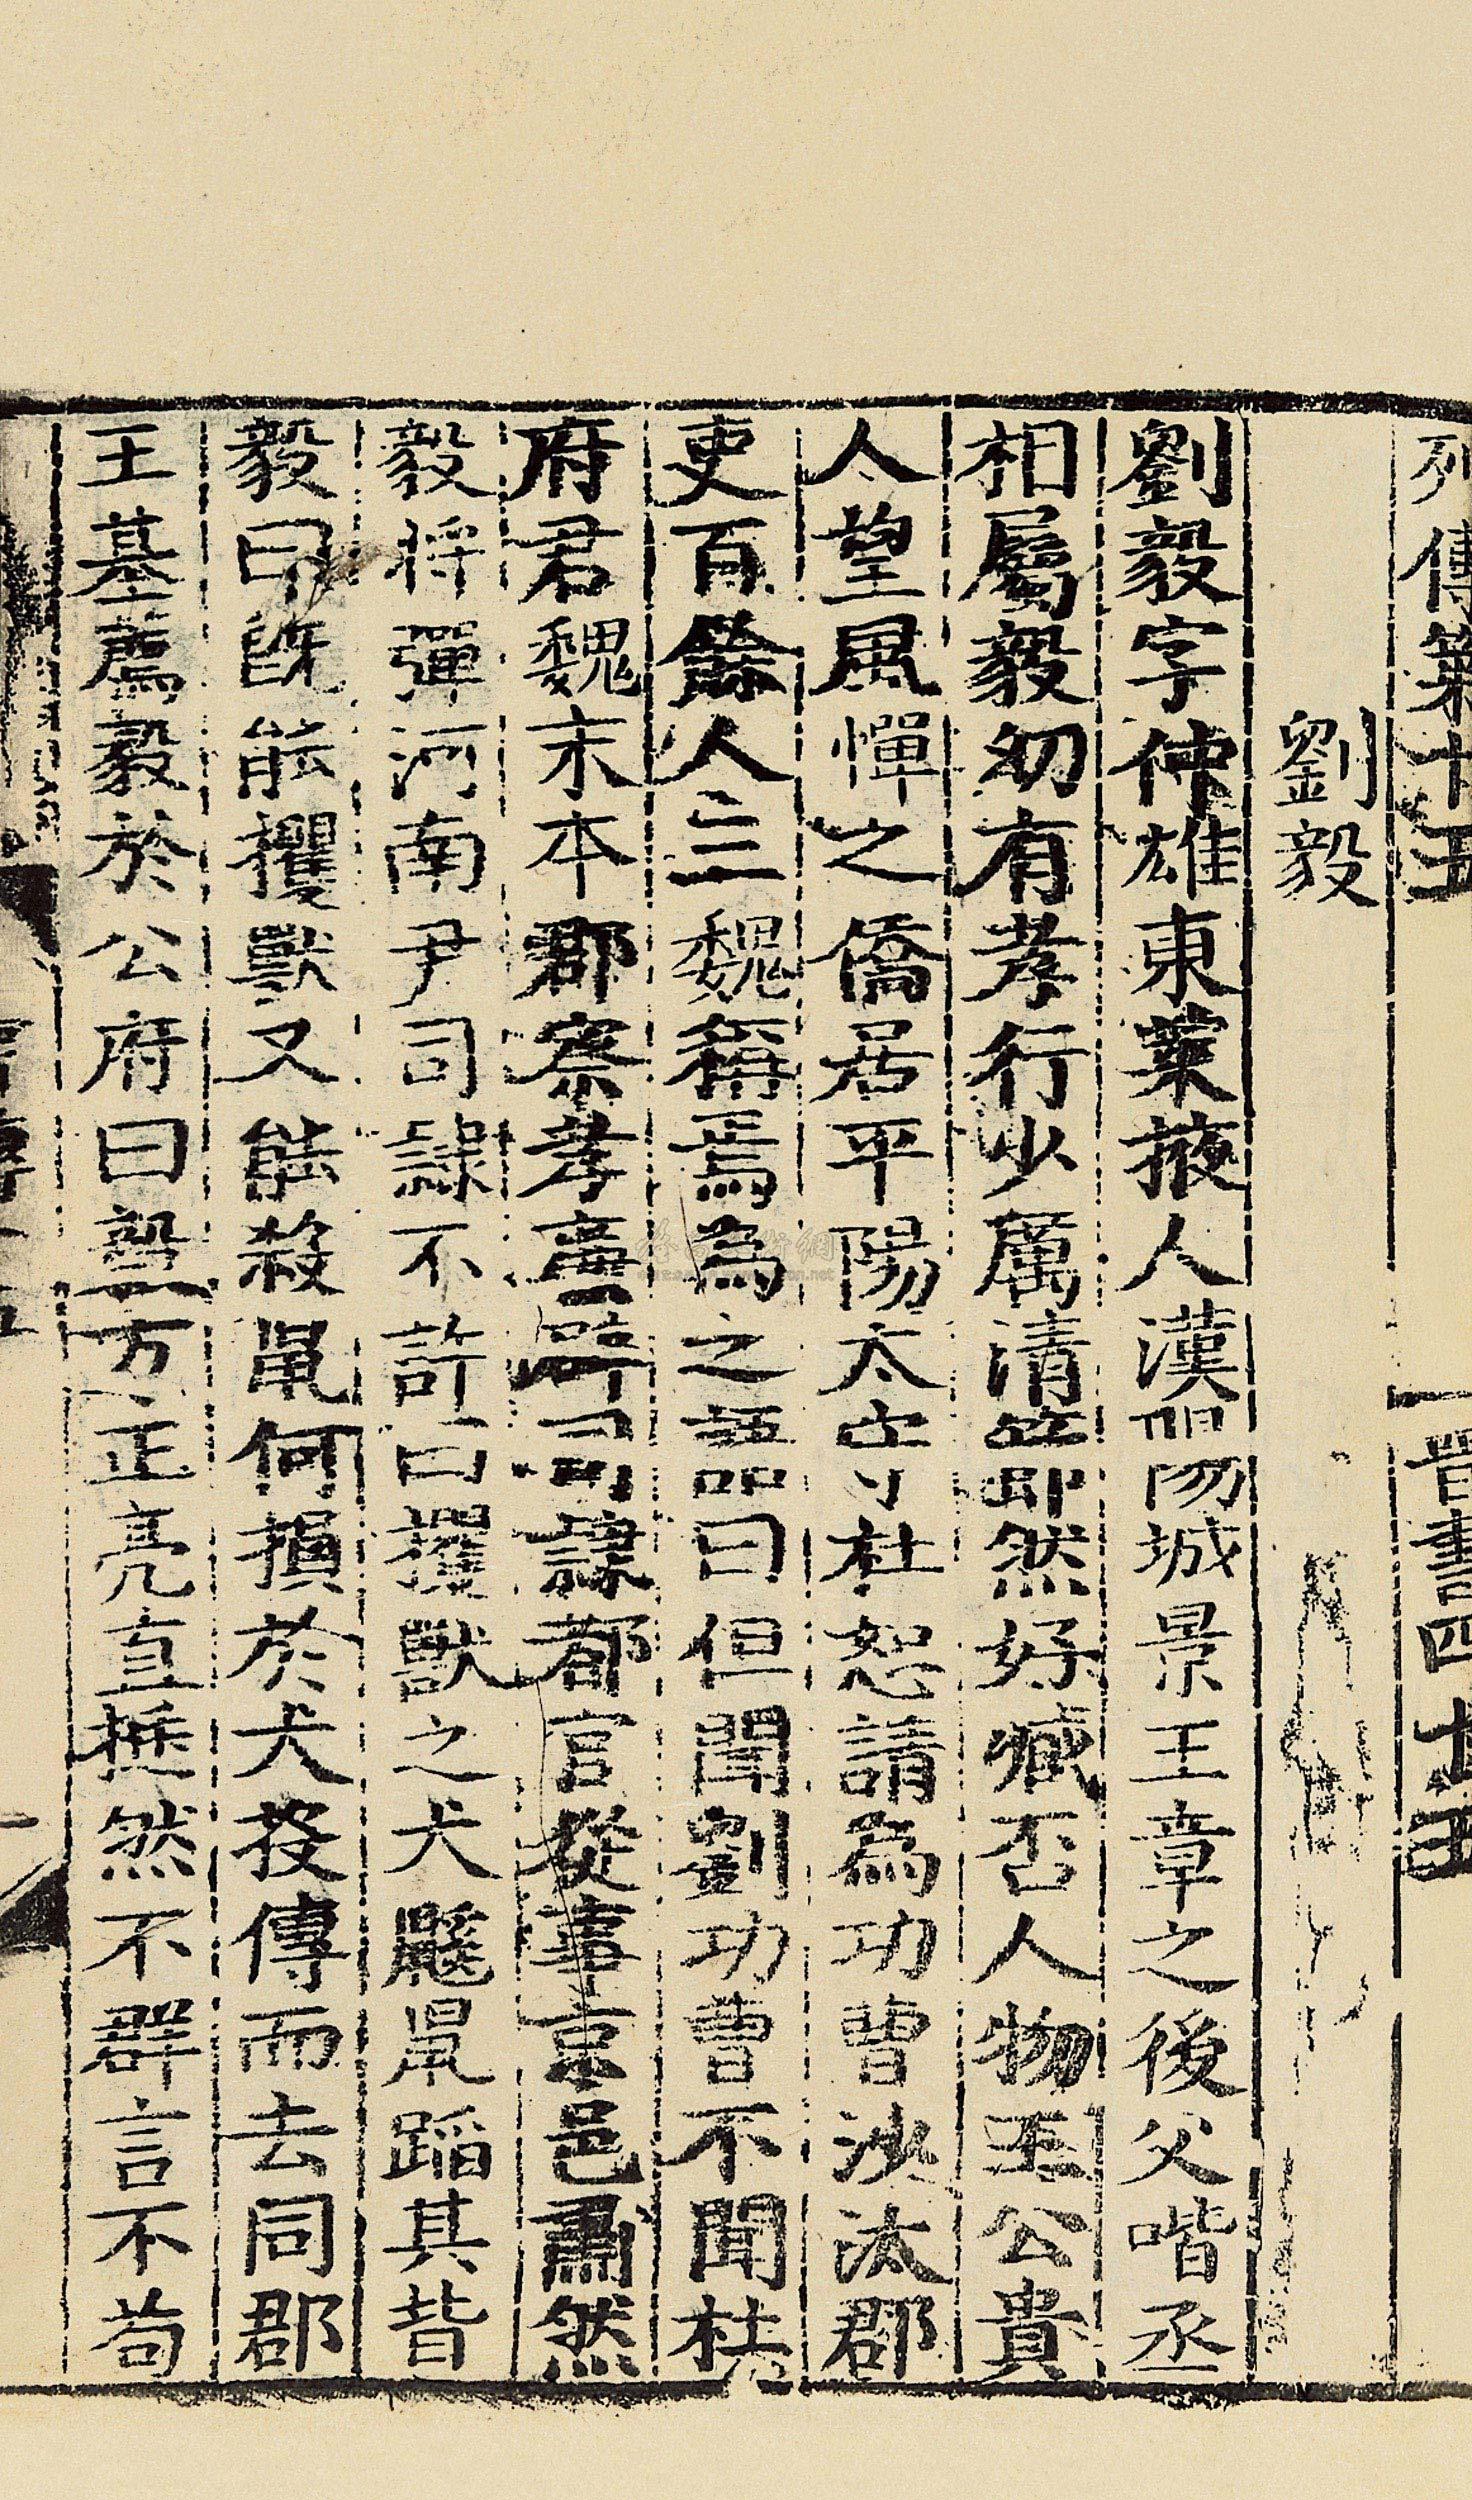 列傳第十五 晉書四十五
劉毅
劉毅字仲雄東萊掖人漢陽城景王章之後父喈丞
相屬毅幼有孝行少厲清節然好臧否人物王公貴
人望風憚之僑居平陽太守杜恕請為功曹沙汰郡
吏百餘人三魏稱焉為之語曰但聞劉功曹不聞杜
府君魏末本郡察孝廉辟司隸都官從事京邑肅然
毅將彈河南尹司隸不許曰攫獸之犬鼷鼠蹈其背
毅曰既能攫獸又能殺鼠何損於犬投傳而去同郡
王基薦毅於公府曰毅方正亮直挺然不群言不苟